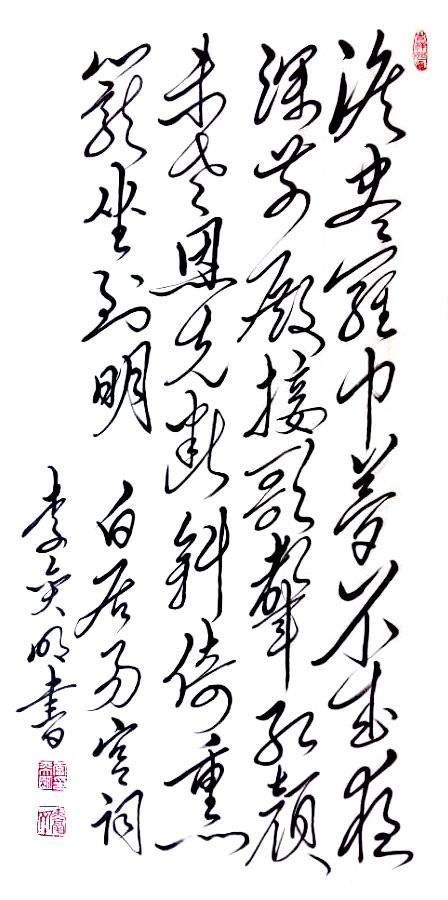 淚盡羅巾夢不成夜
深前殿按歌聲紅顏
未老恩先斷斜倚熏
籠坐到明 白居易宮詞
李奐明書